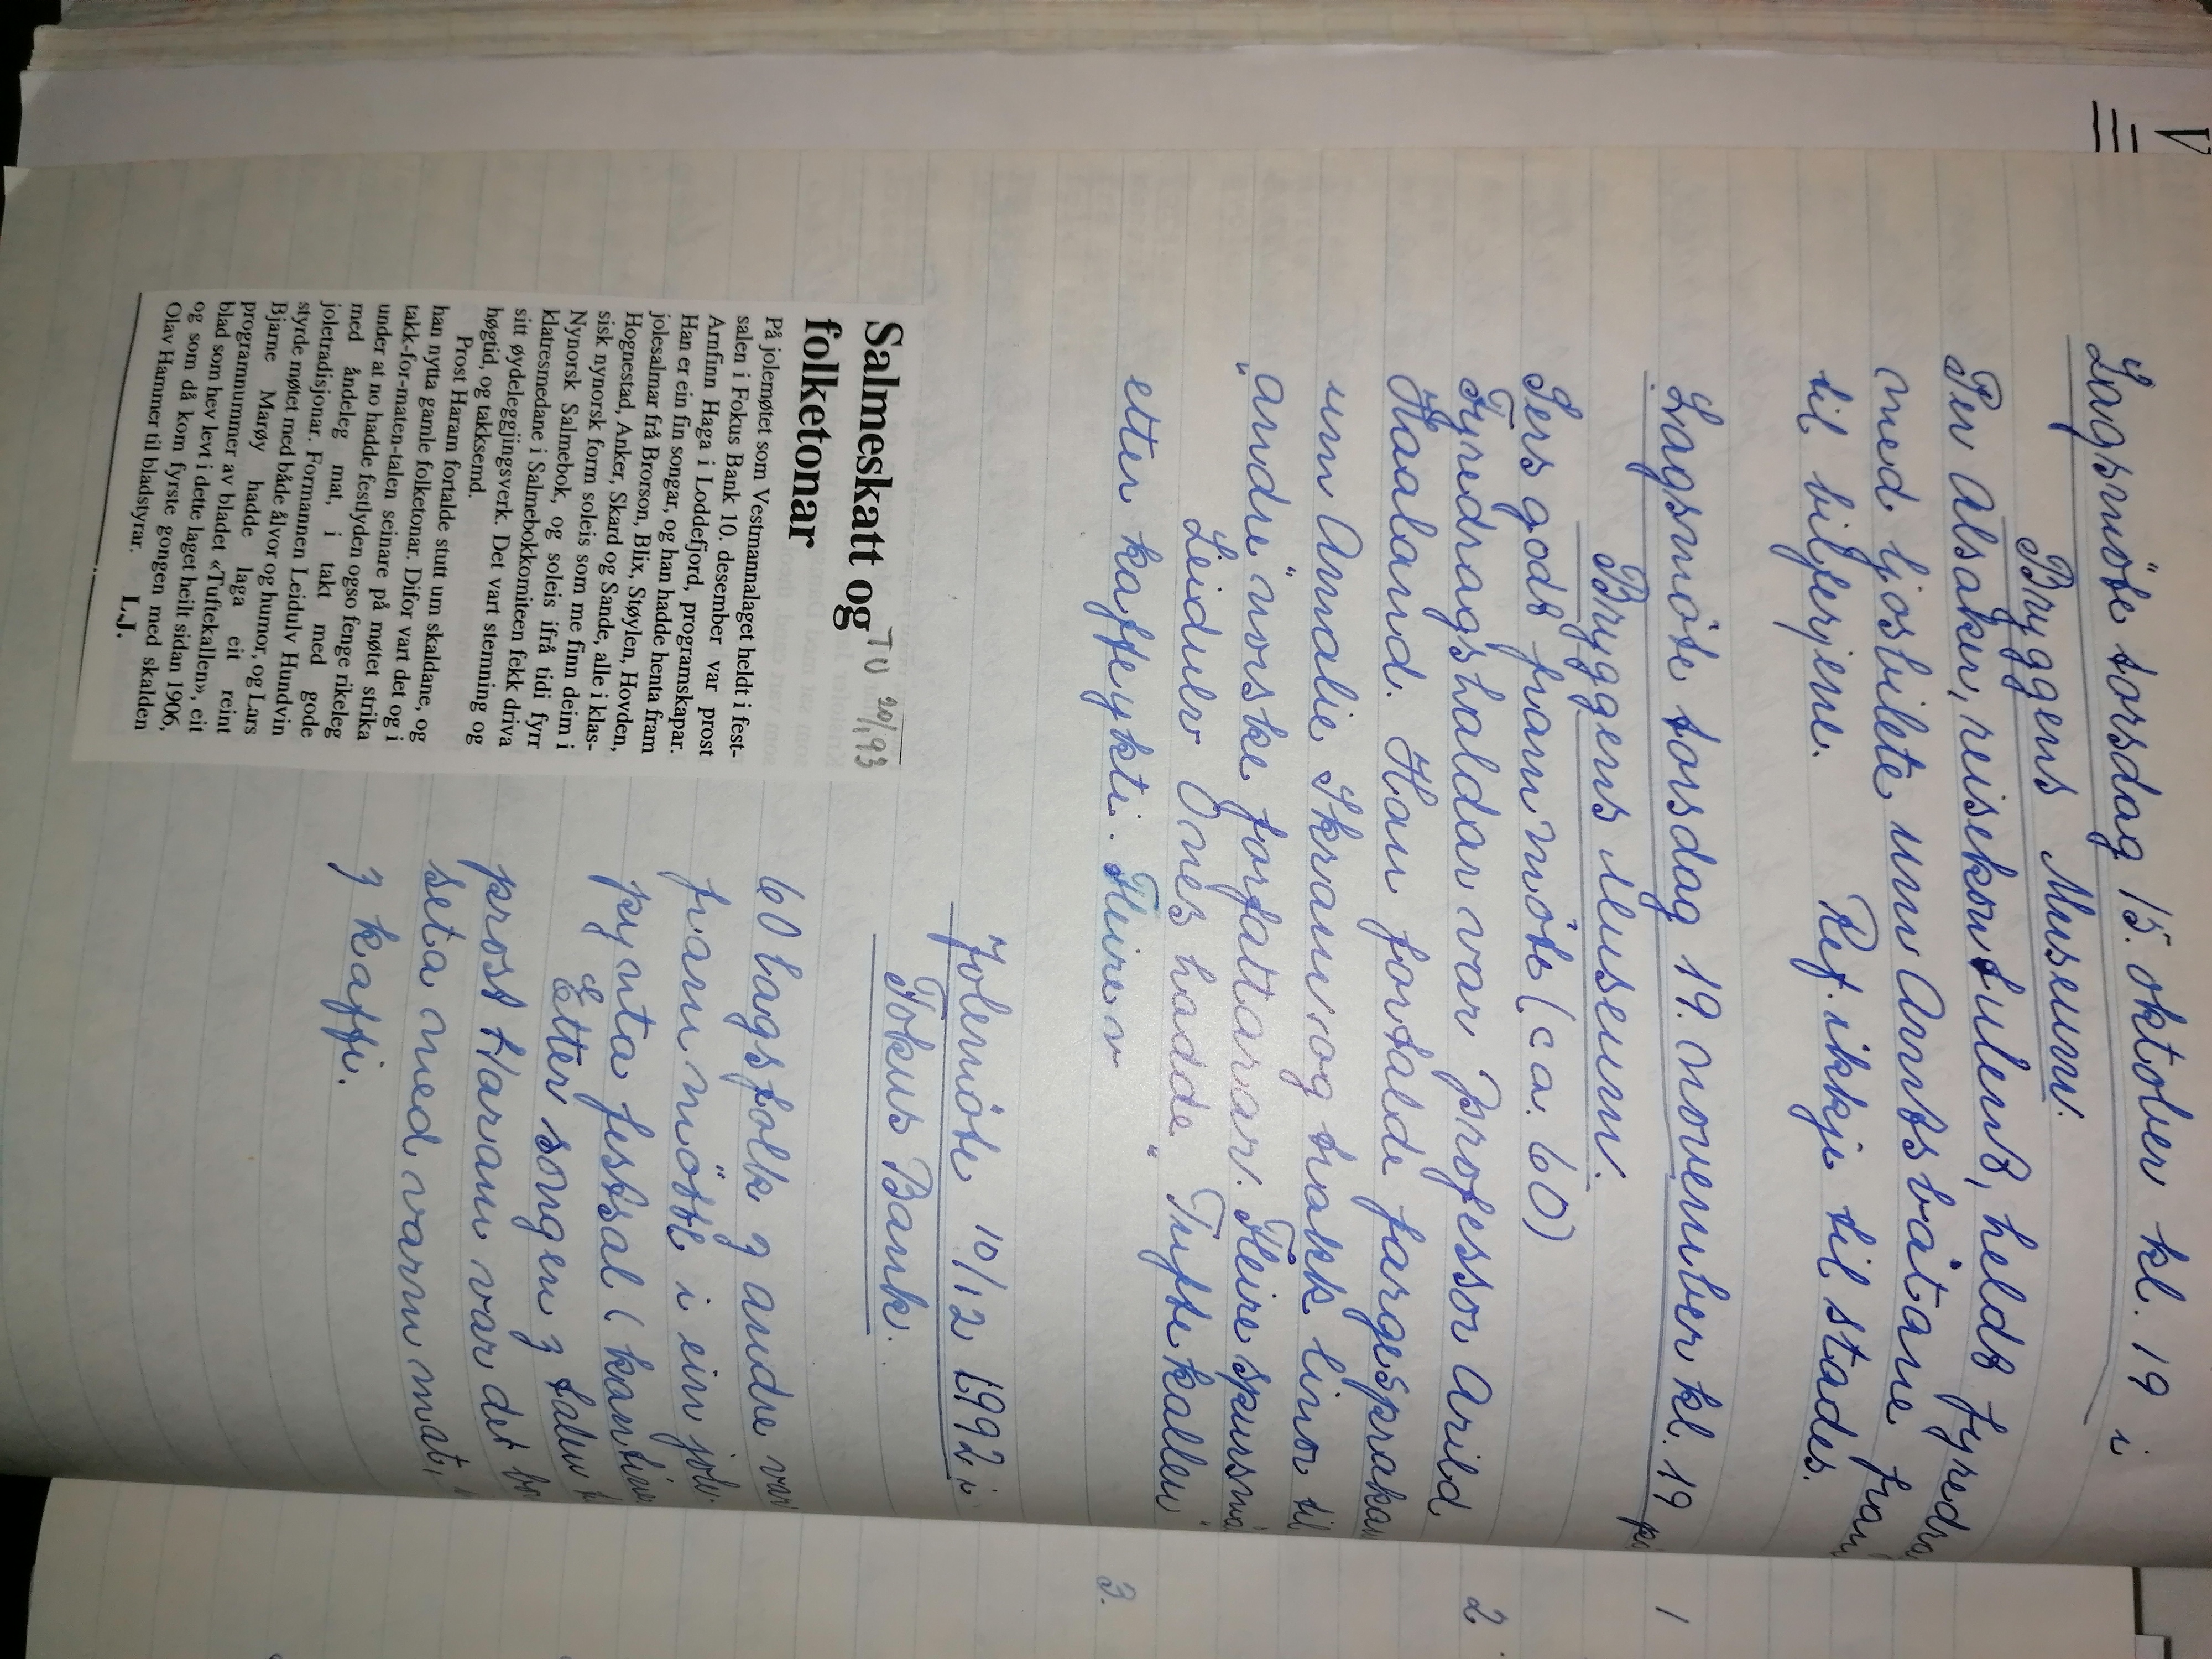 V
Lagsmöte torsdag 15. oktober kl. 19 i
Bryggens Museum.
Per Alsaker, reisekonsulent, heldt fyredra
med ljosbilete um Amtsbåtane fram
til bilferjene. Ref. ikkje til stades.
Lagsmöte torsdag 19. november kl. 19 på
Bryggens Museum.
Sers godt frammöte (ca. 60)
Fyredragshaldar var Professor Arild
Haaland. Han fortalde fargesprakan
um Amalie Skram og trakk linor til
"andre" norske forfattarar. Fleire spursmå
Leidulv Ones hadde "Tuftekallen"
etter kaffeykti. Fleire v
Jolemöte 10/12 1992 i
Fokus Bank.
60 lagsfolk og andre var
frammötte i ein jole-
pynta festsal (kantine
Etter songen og talen
prost Haram var det
seta med varm mat,
og kaffi.
Salmeskatt og
folketonar
TU 20/1 93
På jolemøtet som Vestmannalaget heldt i fest-
salen i Fokus Bank 10. desember var prost
Arnfinn Haga i Loddefjord, programskapar.
Han er ein fin songar, og han hadde henta fram
jolesalmar frå Brorson, Blix, Støylen, Hovden,
Hognestad, Anker, Skard og Sande, alle i klas-
sisk nynorsk form soleis som me finn deim i
Nynorsk Salmebok, og soleis ifrå tidi fyrr
klatresmedane i Salmebokkomiteen fekk driva
sitt øydeleggjingsverk. Det vart stemning og
høgtid, og takksemd.
Prost Haram fortalde stutt um skaldane, og
han nytta gamle folketonar. Difor vart det og i
takk-for-maten-talen seinare på møtet strika
under at no hadde festlyden ogso fenge rikeleg
med åndeleg mat, i takt med gode
joletradisjonar. Formannen Leidulv Hundvin
styrde møtet med både ålvor og humor, og Lars
Bjarne Marøy hadde laga eit reint
programnummer av bladet «Tuftekallen», eit
blad som hev levt i dette laget heilt sidan 1906,
og som då kom fyrste gongen med skalden
Olav Hammer til bladstyrar. L.J.
1
2
3.